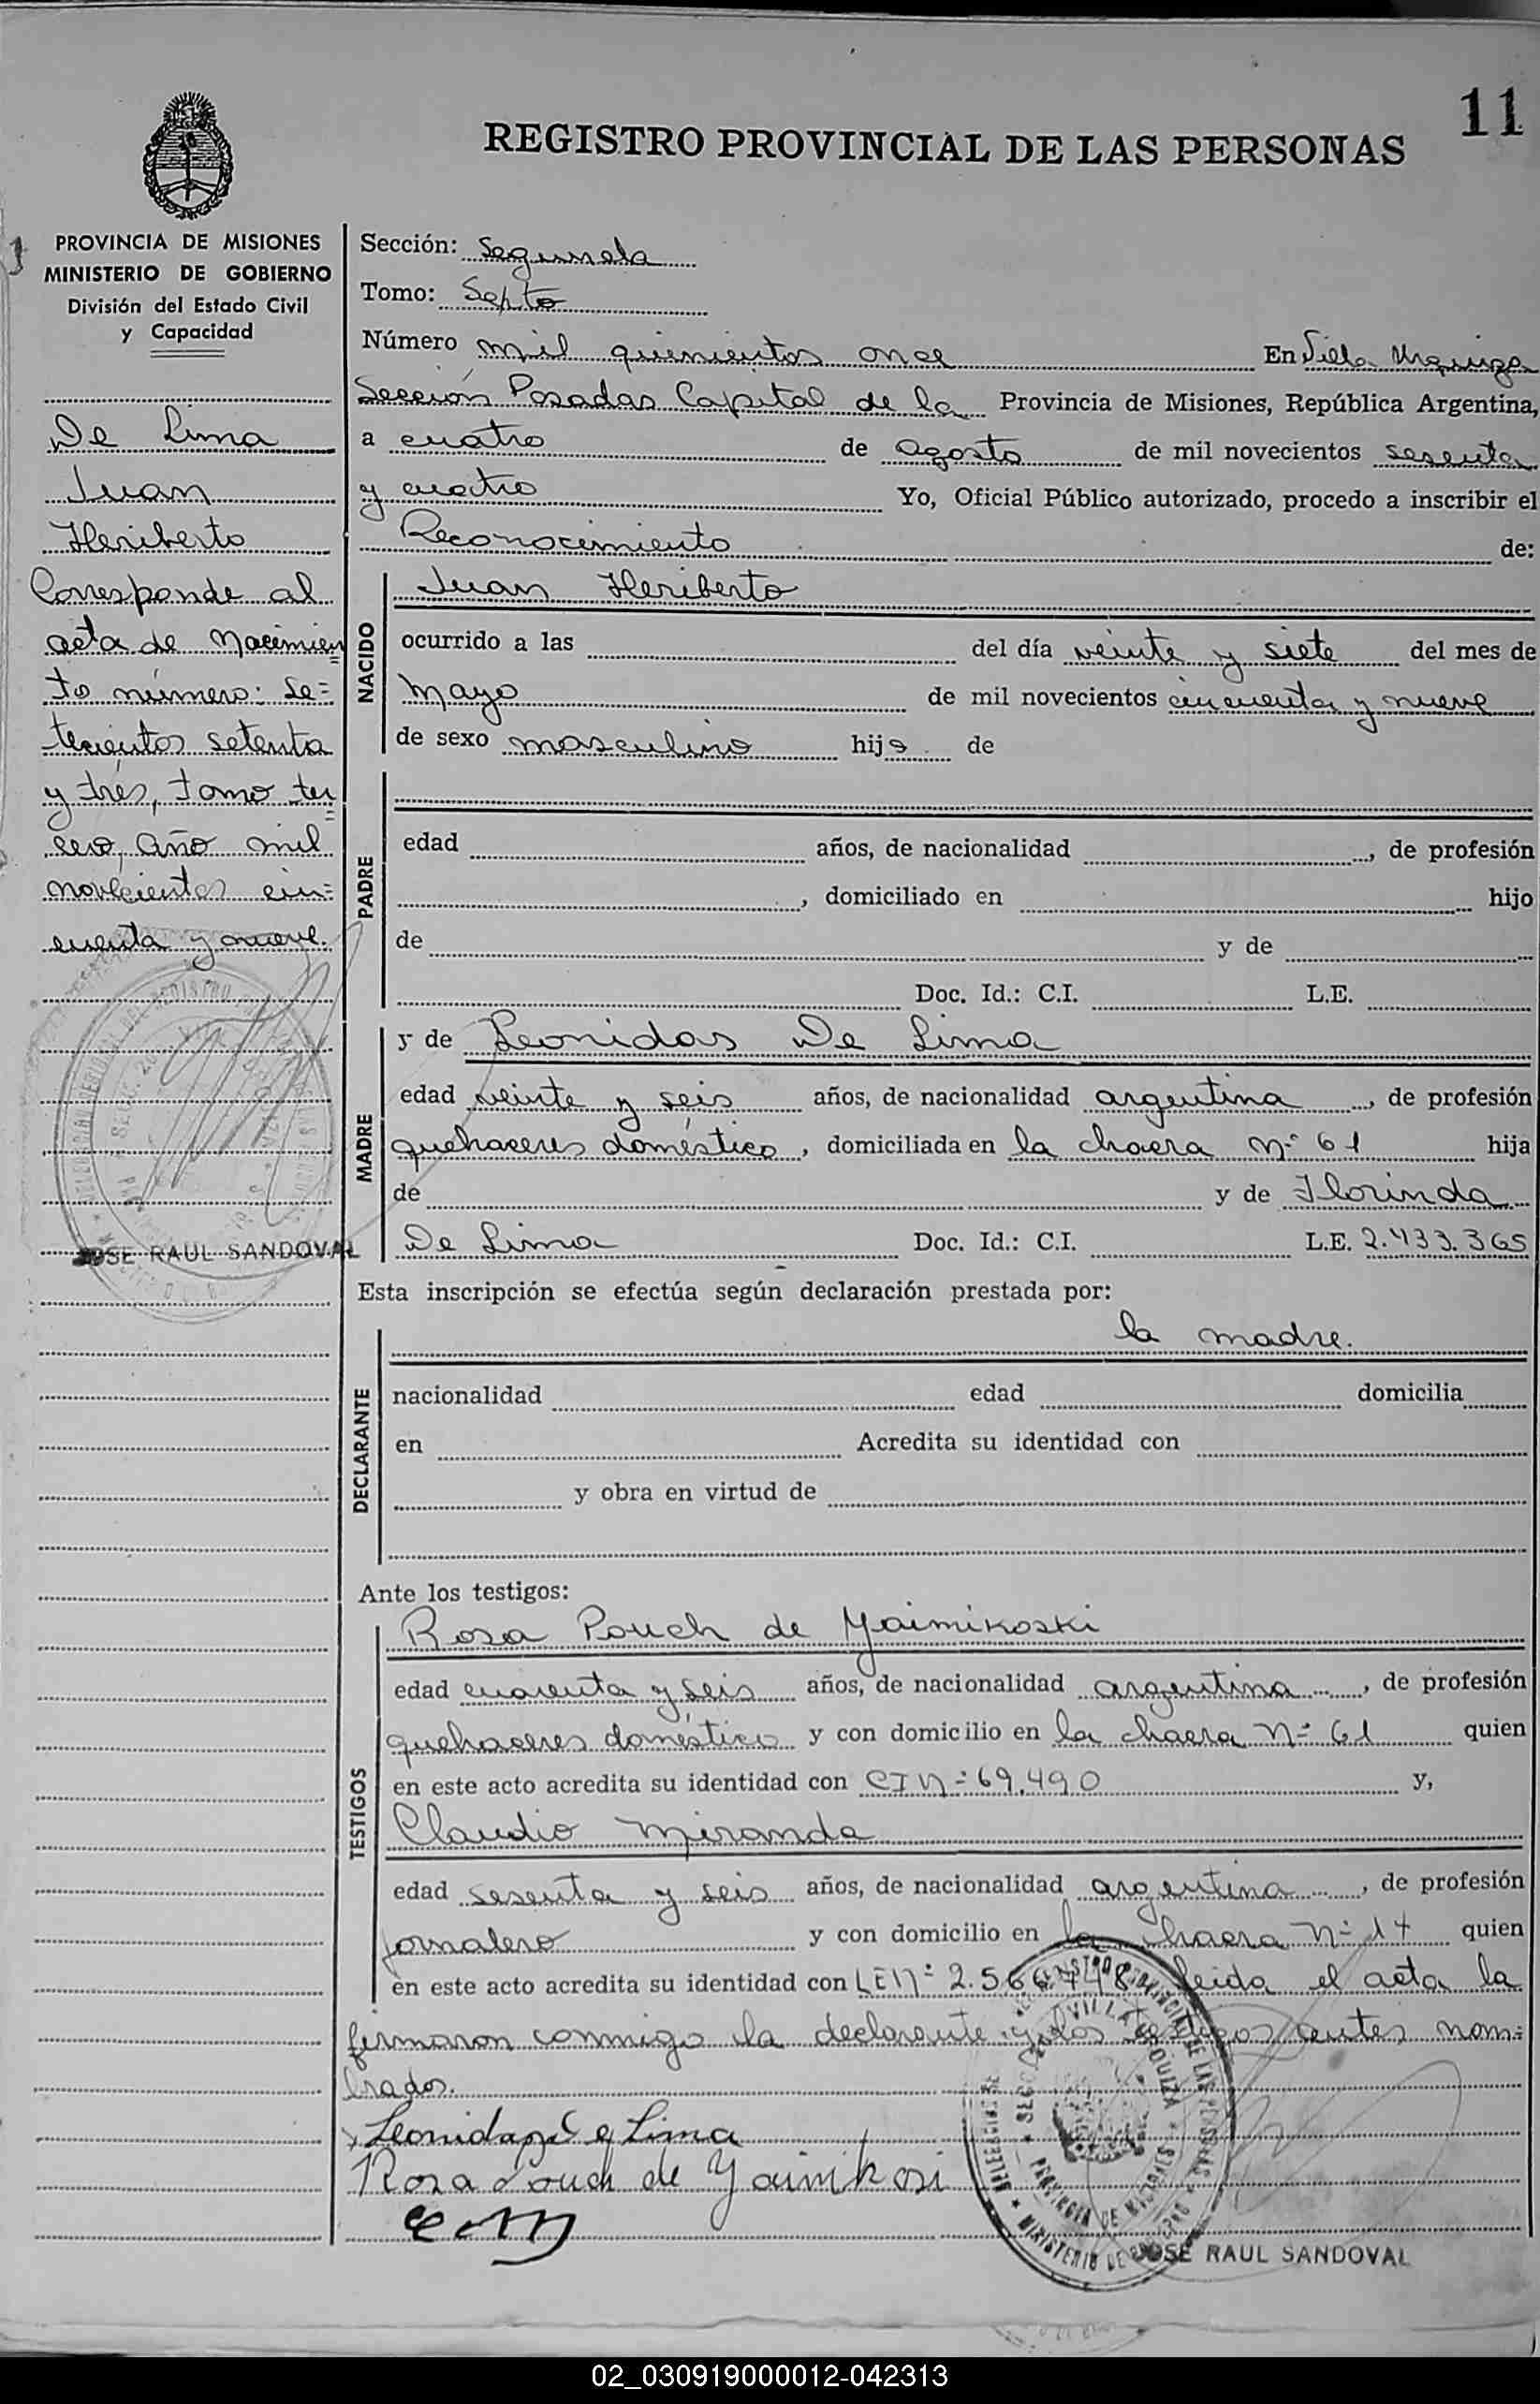 11
REGISTRO PROVINCIAL DE LAS PERSONAS
PROVINCIA DE MISIONES
MINISTERIO DE GOBIERNO
División del Estado Civil
y Capacidad
De Lima
Juan
Heriberto
Corresponde al
acta de Nacimien
to número: Se=
tecientos setenta
y trés, tomo ter
cero, año mil
novecientos cin=
cuenta y nueve.
JOSE RAUL SANDOVAL
Sección: Segunda
Tomo: Septo
Número mil quinientos once En Villa Urquiza
Sección Posadas Capital de la Provincia de Misiones, República Argentina,
a cuatro de agosto de mil novecientos sesenta
y cuatro Yo, Oficial Público autorizado, procedo a inscribir el
Reconocimiento de:
NACIDO
Juan Heriberto
ocurrido a las del día veinte y siete del mes de
mayo de mil novecientos cincuenta y nueve
de sexo masculino hijo de
PADRE
edad años, de nacionalidad , de profesión
, domiciliado en hijo
de y de
Doc. Id.: C.I. L.E.
MADRE
y de Leonidas De Lima
edad veinte y seis años, de nacionalidad argentina , de profesión
quehaceres doméstico, domiciliada en la chacra Nº 61 hija
de y de Florinda
De Lima Doc. Id.: C.I. L.E. 2.433.365
Esta inscripción se efectúa según declaración prestada por:
la madre.
DECLARANTE
nacionalidad edad domicilia
en Acredita su identidad con
y obra en virtud de
Ante los testigos:
TESTIGOS
Rosa Pouch de Yaimikoski
edad cuarenta y seis años, de nacionalidad argentina , de profesión
quehaceres doméstico y con domicilio en la chacra Nº 61 quien
en este acto acredita su identidad con CI Nº 69.490 y,
Claudio Miranda
edad sesenta y seis años, de nacionalidad argentina , de profesión
jornalero y con domicilio en la chacra Nº 14 quien
en este acto acredita su identidad con LE Nº 2.566.448 leida el acta la
firmaron conmigo la declarante y los testigos antes nom=
brados.
Leonidas de Lima
Rosa Pouch de Yaimikosi
JOSE RAUL SANDOVAL
02_030919000012-042313